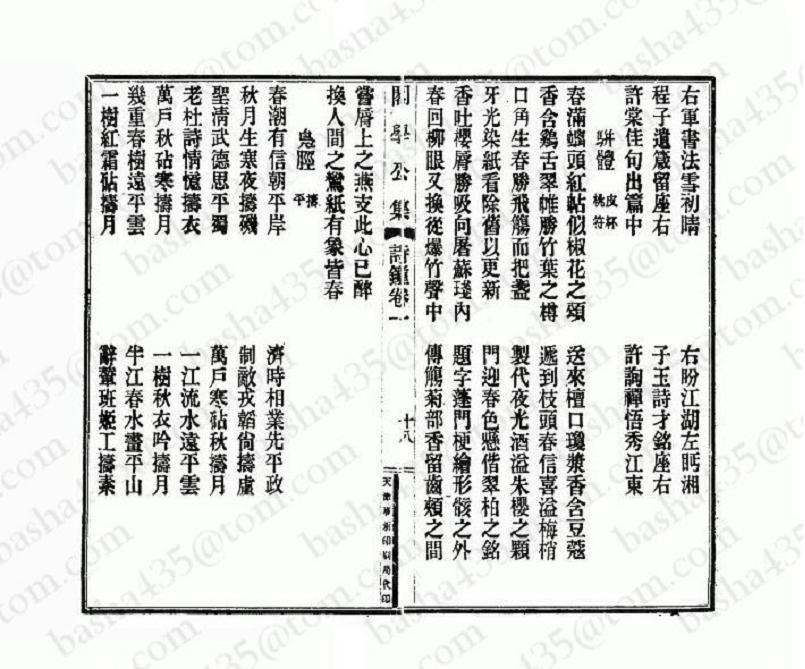 右軍書法雪初晴　右盼江湖左眄湘
程子遺箴留座右　子玉詩才銘座右
許棠佳句出篇中　許詢禪悟秀江東
駢體　皮杯　桃符
春滿螭頭紅帖似椒花之頌　送來檀口瓊漿香含豆蔻
香含鷄舌翠帷勝竹葉之樽　遞到枝頭春信喜溢梅梢
口角生春勝飛觴而把盞　製代夜光酒溢朱櫻之顆
牙光染紙看除舊以更新　門迎春色懸偕翠柏之銘
香吐櫻唇勝吸向屠蘇琖內　題字蓬門梗繪形骸之外
春回柳眼又換從爆竹聲中　傳觴菊部香留齒頰之間
閣學公集　詩鐘卷一　十八　天津華新印刷局代印
嘗唇上之燕支此心已醉
換人間之鸞紙有象皆春
鳧脛　擣　平
春潮有信朝平岸　濟時相業先平政
秋月生寒夜擣磯　制敵戎韜尙擣虛
聖淸武德思平蜀　萬戶寒砧秋擣月
老杜詩情憶擣衣　一江流水遠平雲
萬戶秋砧寒擣月　一樹秋衣吟擣月
幾重春樹遠平雲　半江春水畫平山
一樹紅霜砧擣月　辭輦班姬工擣素
basha435@tom.com